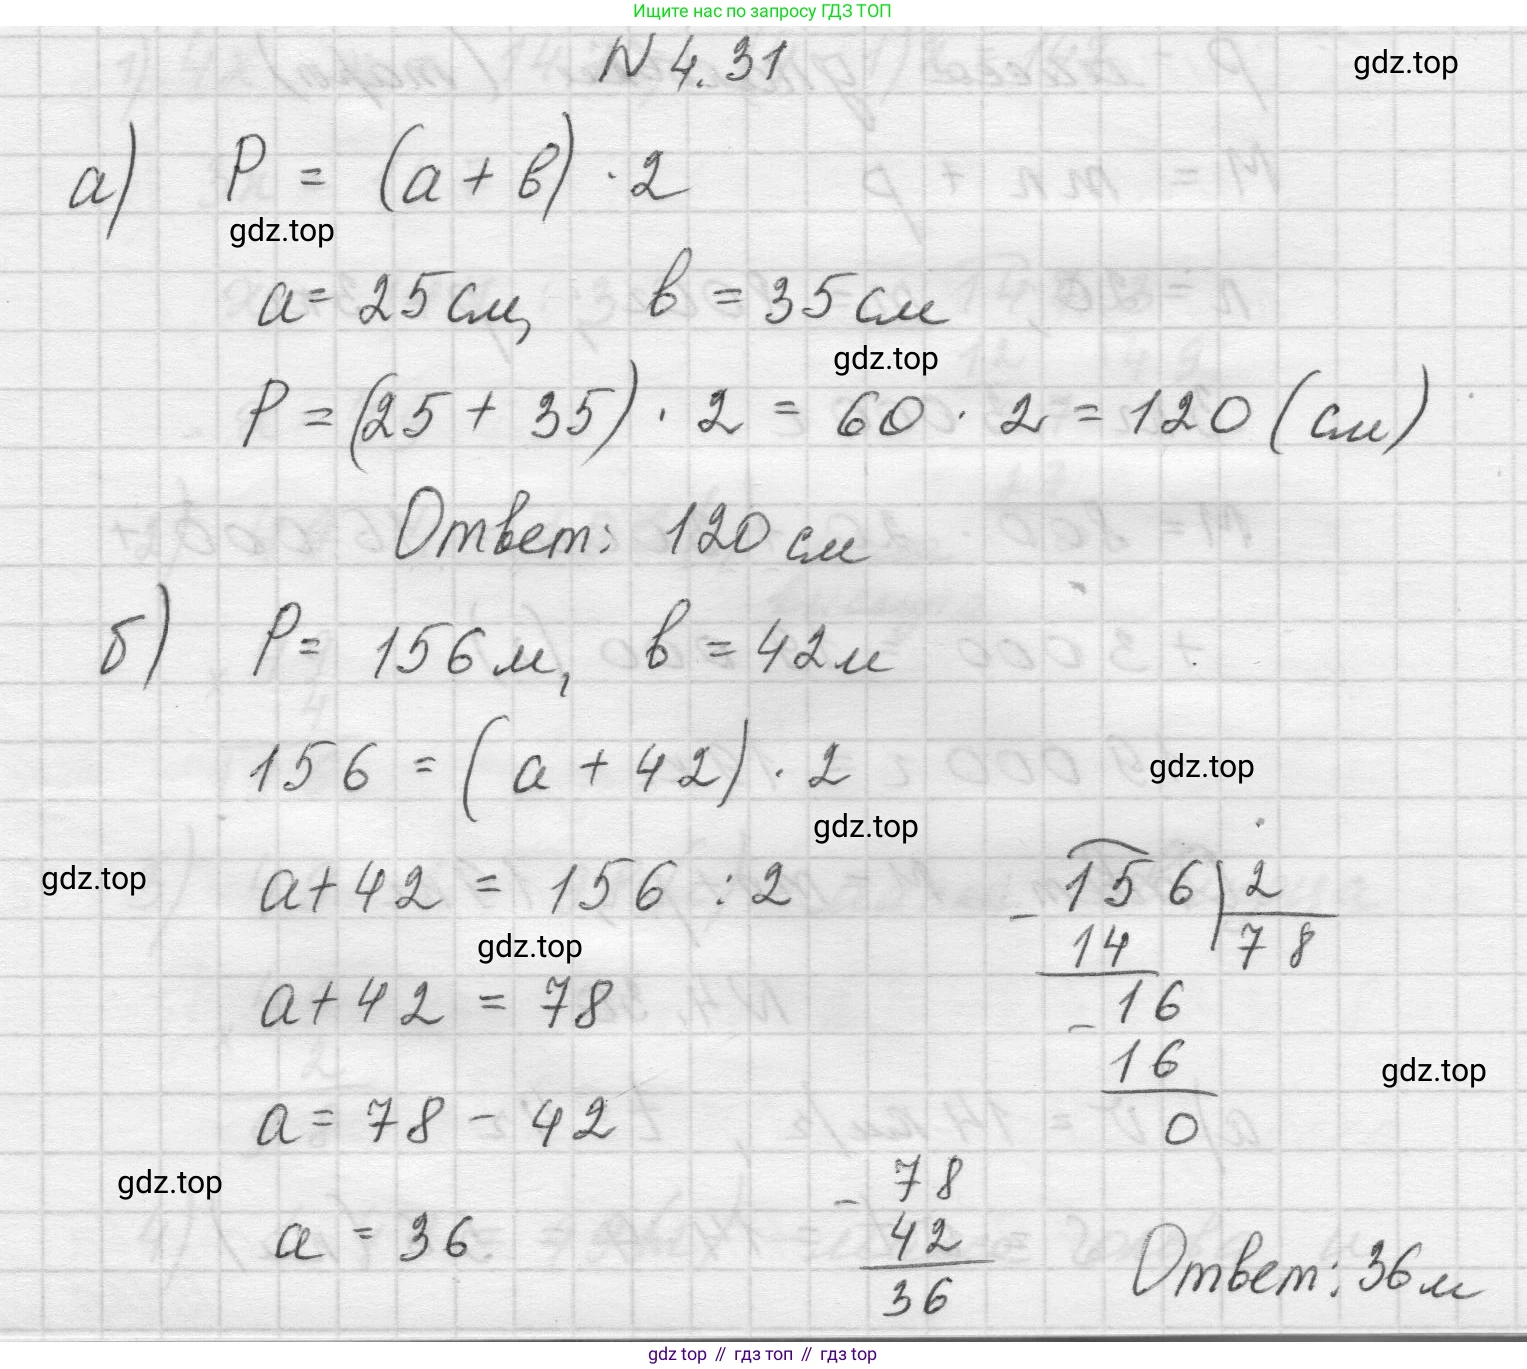 Ищите нас по запросу ГДЗ ТОП
N 4.31
gdz.top
а) P = (a + b) · 2
gdz.top
a = 25 см, b = 35 см
gdz.top
P = (25 + 35) · 2 = 60 · 2 = 120 (см)
Ответ: 120 см
б) P = 156 м, b = 42 м
156 = (a + 42) · 2
gdz.top
gdz.top
gdz.top
a + 42 = 156 : 2
gdz.top
a + 42 = 78
a = 78 - 42
a = 36
- 156 | 2
14 78
- 16
16
0
gdz.top
gdz.top
- 78
42
36
Ответ: 36 м
gdz top // гдз топ // гдз top